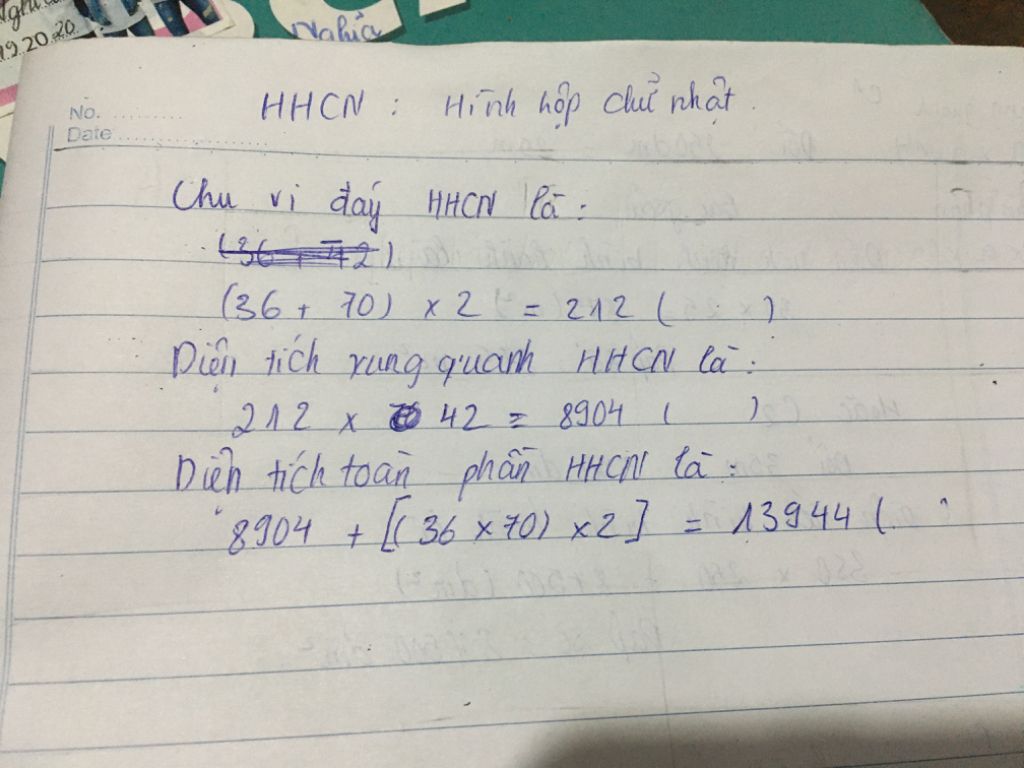 Nghĩa
19.20.20
No.
Date
HHCN : Hình hộp chữ nhật.
Chu vi đáy HHCN là :
(36 + 70) x 2 = 212 ( )
Diện tích xung quanh HHCN là :
212 x 42 = 8904 ( )
Diện tích toàn phần HHCN là :
8904 + [(36 x 70) x 2] = 13944 (